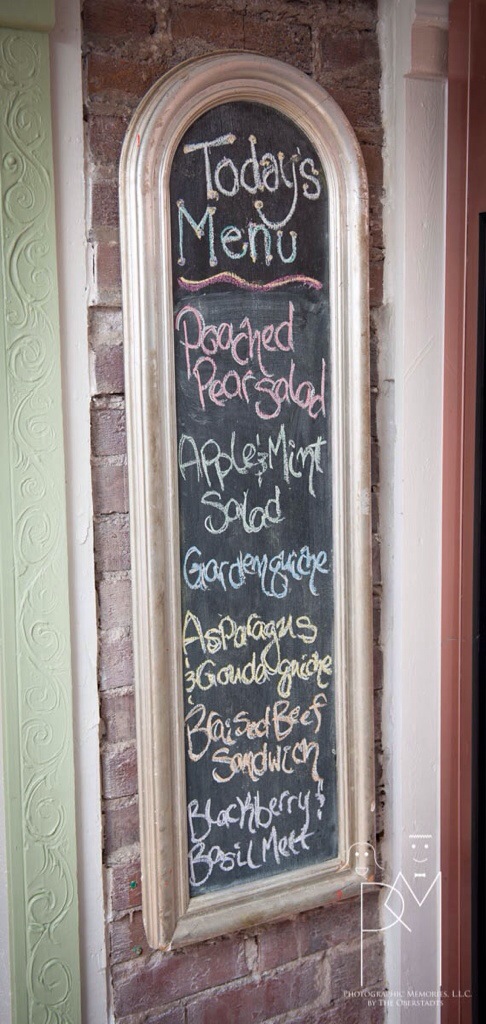 Today's
Menu
Poached
Pear salad
Apple & Mint
Salad
Garden quiche
Asparagus
& Gouda quiche
Braised Beef
Sandwich
Blackberry &
Basil Melt
PM
PHOTOGRAPHIC MEMORIES, L.L.C.
BY THE OBERSTADTS